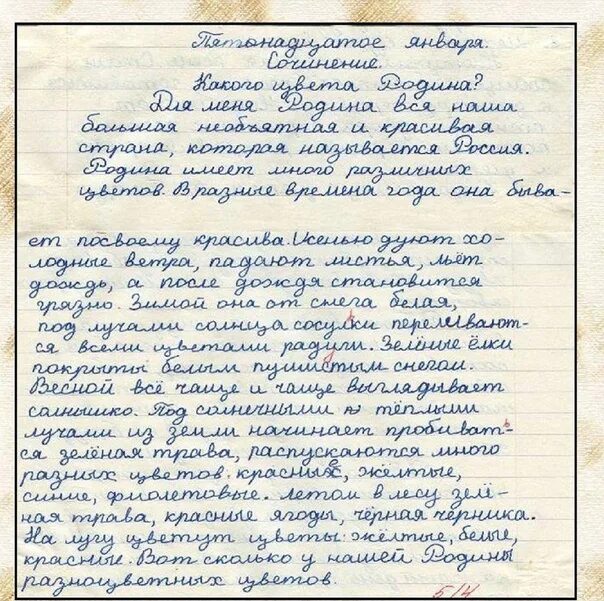 Пятонадцатое января.
Сочинение.
Какого цвета Родина?
Для меня Родина вся наша
большая необъятная и красивая
страна, которая называется Россия.
Родина имеет много различных
цветов. В разные времена года она быва-
ет посвоему красива. Осенью дуют хо-
лодные ветра, падают листья, льёт
дождь, а после дождя становится
грязно. Зимой она от снега белая,
под лучами солнца сосульки переливают-
ся всеми цветами радуги. Зелёные ёлки
покрыты белым пушистым снегом.
Весной всё чаще и чаще выглядывает
солнышко. Под солнечными тёплыми
лучами из земли начинает пробивать-
ся зелёная трава, распускаются много
разных цветов: красные, жёлтые,
синие, фиолетовые. Летом в лесу зелё-
ная трава, красные ягоды, чёрная черника.
На лугу цветут цветы: жёлтые, белые,
красные. Вот сколько у нашей Родины
разноцветных цветов.
5/4